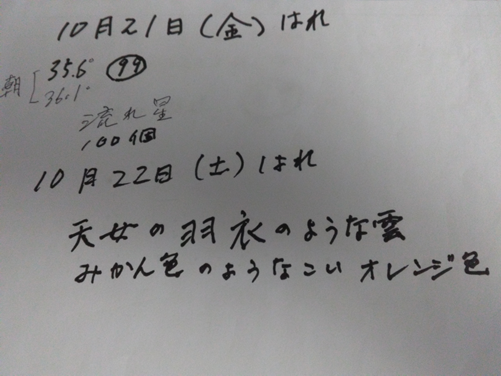 10月21日(金)はれ
朝 35.6° 99
36.1°
流れ星
100個
10月22日(土)はれ
天女の羽衣のような雲
みかん色のようなこいオレンジ色